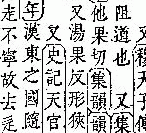 穆天子
阻道也 又集
他果切集韻韻
又湯果反形狹
又史記天官
年漢東之國隨
走不寧故去是